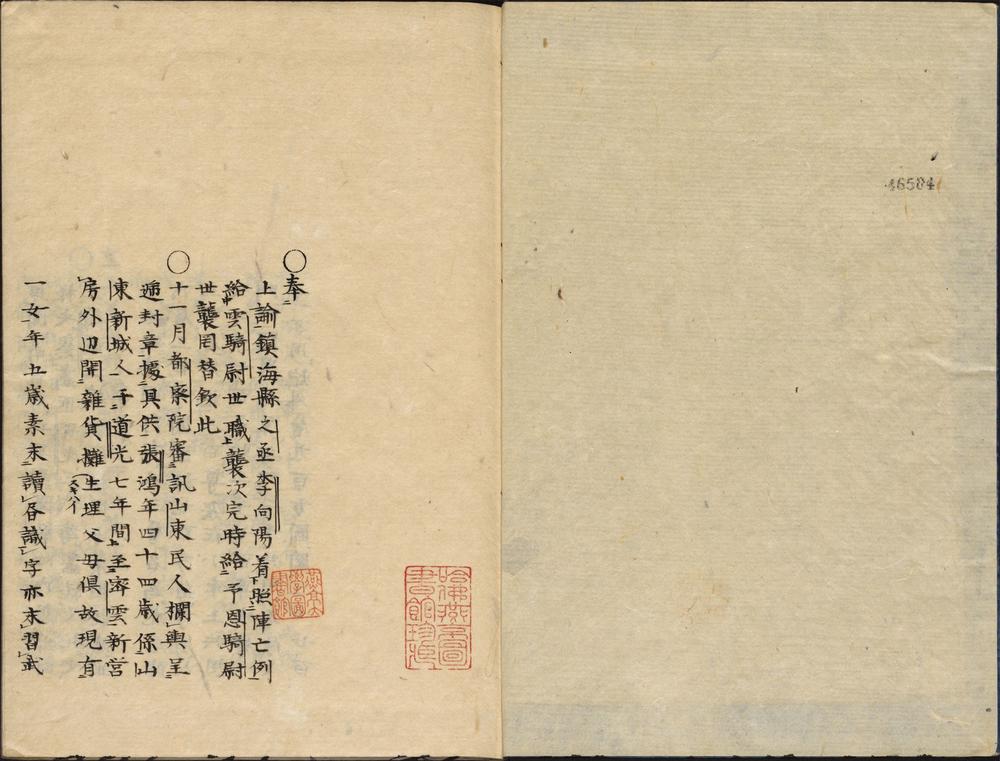 46584
○奉
上諭鎮海縣之丞李向陽着照陣亡例
給雲騎尉世職襲次完時給予恩騎尉
世襲罔替欽此
○十一月都察院審訊山東民人攔輿呈
遞封章據具供張鴻年四十四歲係山
東新城人于道光七年間至密雲新営
房外边開雜貨攤生理父母俱故現有
一女年五歲素未讀各識字亦未習武
哈佛燕京圖書館珍藏